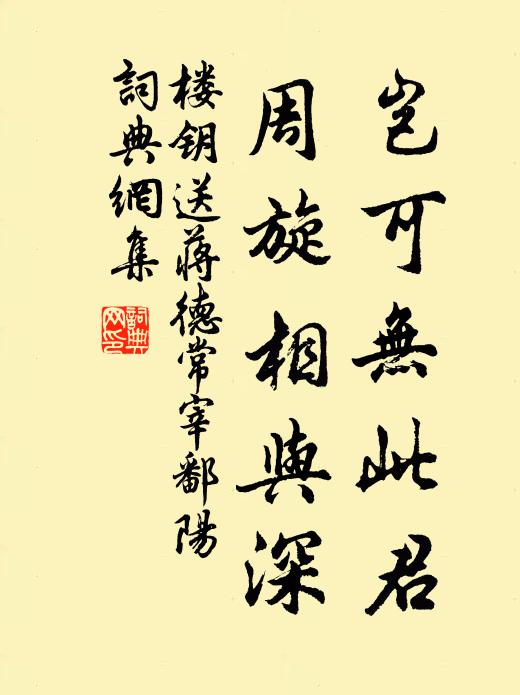 岂可無此君
周旋相與深
楼钥送蔣德常宰鄱陽
詞典網集
詞典
网印